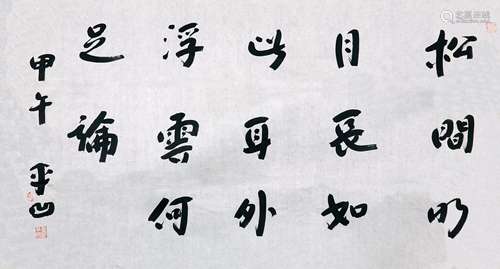 松間明
月長如
此耳外
浮雲何
足論
甲午 平凹